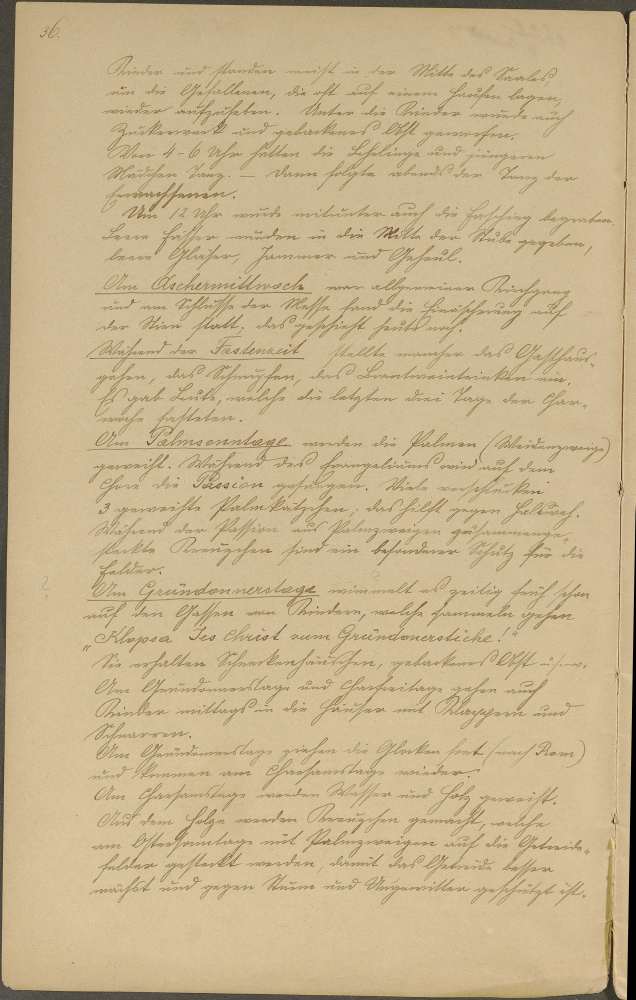 36.
Kinder und standen meist in der Mitte des Saales,
um die Gefallenen, die oft auf einem Haufen lagen,
wieder aufzuheben. Unter die Kinder wurde auch
Zuckerwerk und gebackenes Obst geworfen.
Von 4-6 Uhr hatten die Lehrlinge und jüngeren
Mädchen Tanz. — Dann folgte abends der Tanz der
Erwachsenen.
Um 12 Uhr wurde mitunter auch die Fasching begraben.
Leere Fässer wurden in die Mitte der Stube gegeben,
leere Gläser, Jammer und Geheul.
Am Aschermittwoch war allgemeiner Kirchgang
und am Schlusse der Messe fand die Einäscherung auf
der Stirn statt; das geschieht heute noch.
Während der Fastenzeit stellte mancher das Gasthaus-
gehen, das Schnupfen, das Branntweintrinken ein.
Es gab Leute, welche die letzten drei Tage der Char-
woche fasteten.
Am Palmsonntage werden die Palmen (Weidenzweige)
geweiht. Während des Evangeliums wird auf dem
Chore die Passion gesungen. Viele verschlucken
3 geweihte Palmkätzchen; das hilft gegen Halsweh.
Während der Passion aus Palmzweigen zusammenge-
steckte Kreuzchen sind ein besonderer Schutz für die
Felder.
?
Am Gründonnerstage wimmelt es zeitig früh schon
auf den Gassen von Kindern, welche sammeln gehen
„Klopsa Jes Christ zum Gründonerstiche!"
Sie erhalten Schneckenhäuschen, gebackenes Obst u.s.w.
Am Gründonnerstage und Charfreitage gehen auch
Kinder mittags in die Häuser mit Klappern und
Schnarren.
Am Gründonnerstage ziehen die Glocken fort (nach Rom)
und kommen am Charsamstage wieder.
Am Charsamstage werden Wasser und Holz geweiht.
Aus dem Holze werden Kreuzchen gemacht, welche
am Ostersonntage mit Palmzweigen auf die Getreide-
felder gesteckt werden, damit das Getreide besser
wächst und gegen Sturm und Ungewitter geschützt ist.